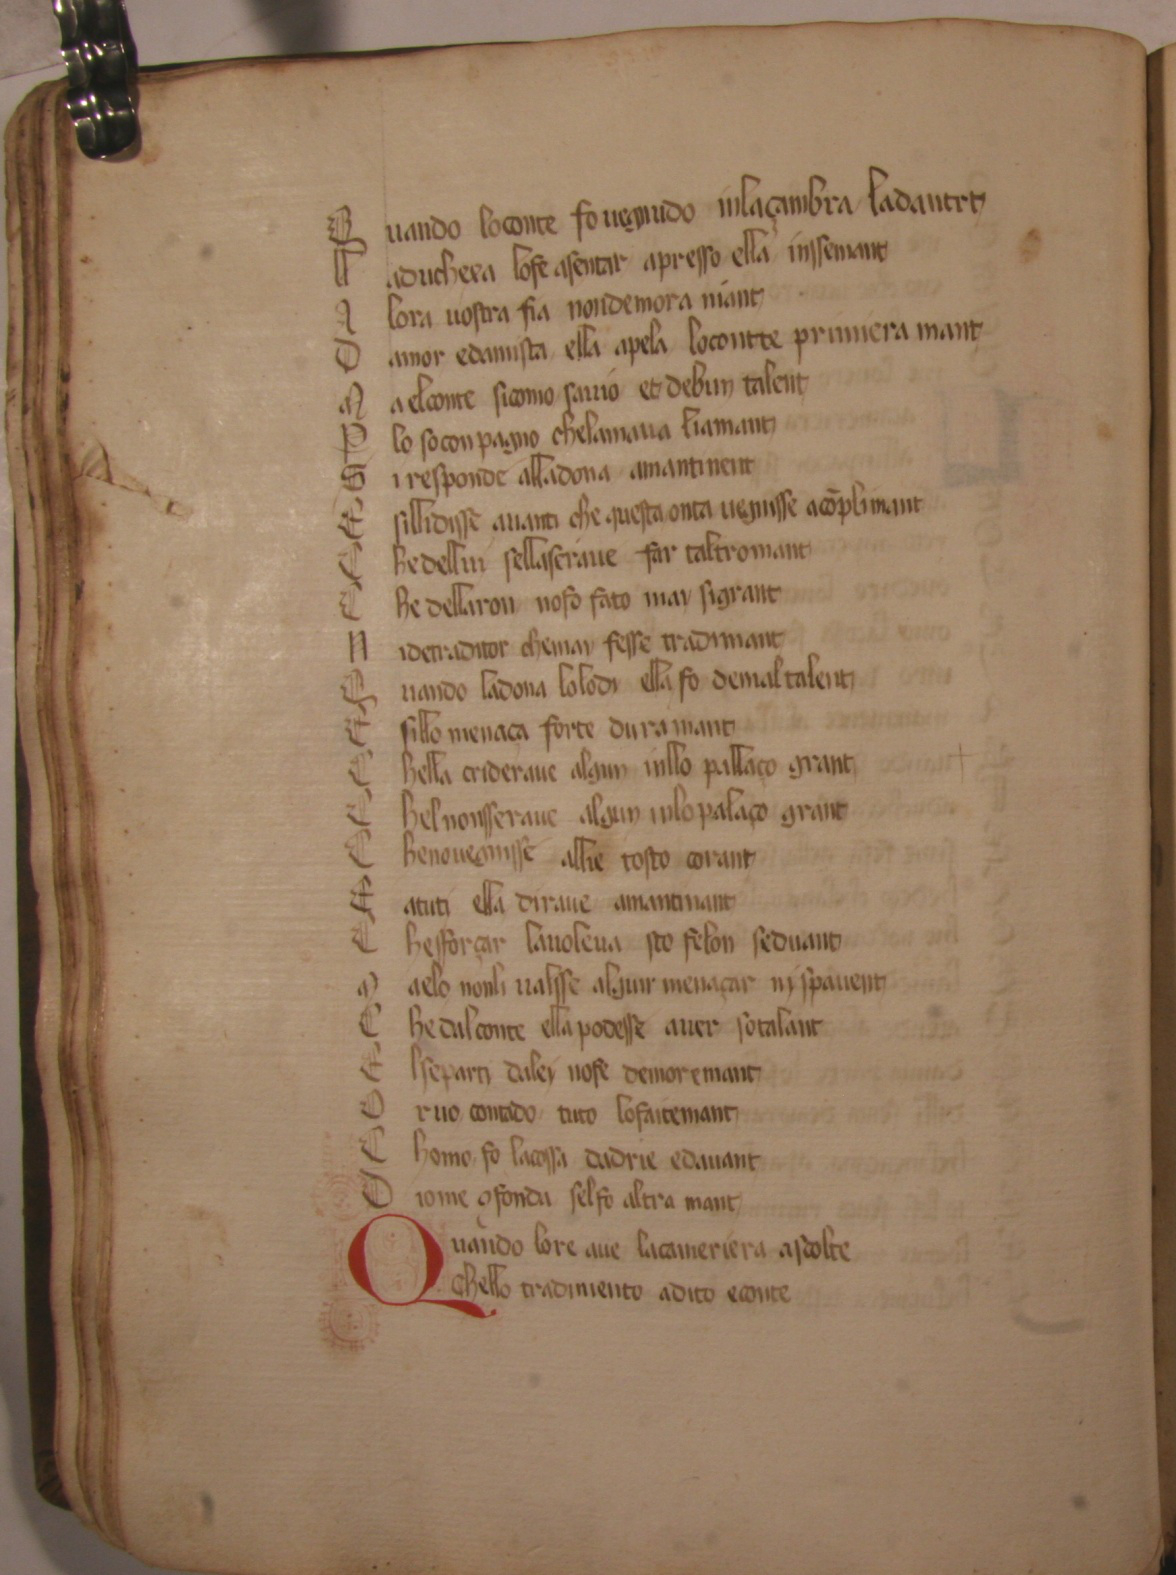 Quando lo conte fo uegnudo in la çambra la dauert
La duchexa lo fe asentar apresso ella inssemant
Alora uostra fia non demora niant
D amor e damista ella apela lo contte primiera mant
Ma el conte sicomo sauio et de bun talent
P lo so conpagno che lamaua liamant
Si responde alla dona amantinent
E silli disse auanti che questa onta uegnisse acõplimant
C he de llui sella seraue far taltro mant
C he de llaron no fo fato may si grant
N i de traditor che may fesse tradimant
Quando la dona lo lodi ella fo de mal talent
E sillo menaça forte dura mant
C hella crideraue algun in llo pallaço grant
C hel non sseraue algun in lo palaço grant
C he no uegnisse allie tosto corant
E a tuti ella diraue amantinant
C he sforçar la uoleua sto felon seduant
Ma elo non li ualsse alguir menaçar ny spauent
C he dal conte ella podesse auer so talant
E l se party da ley no fe demoremant
O r uo contado tuto lo faitemant
C homo fo la cossa dadrie e dauant
D io me 9fonda sel fo altra mant
Quando lo re aue la cameriera ascolte
Chello tradimento a dito e conte